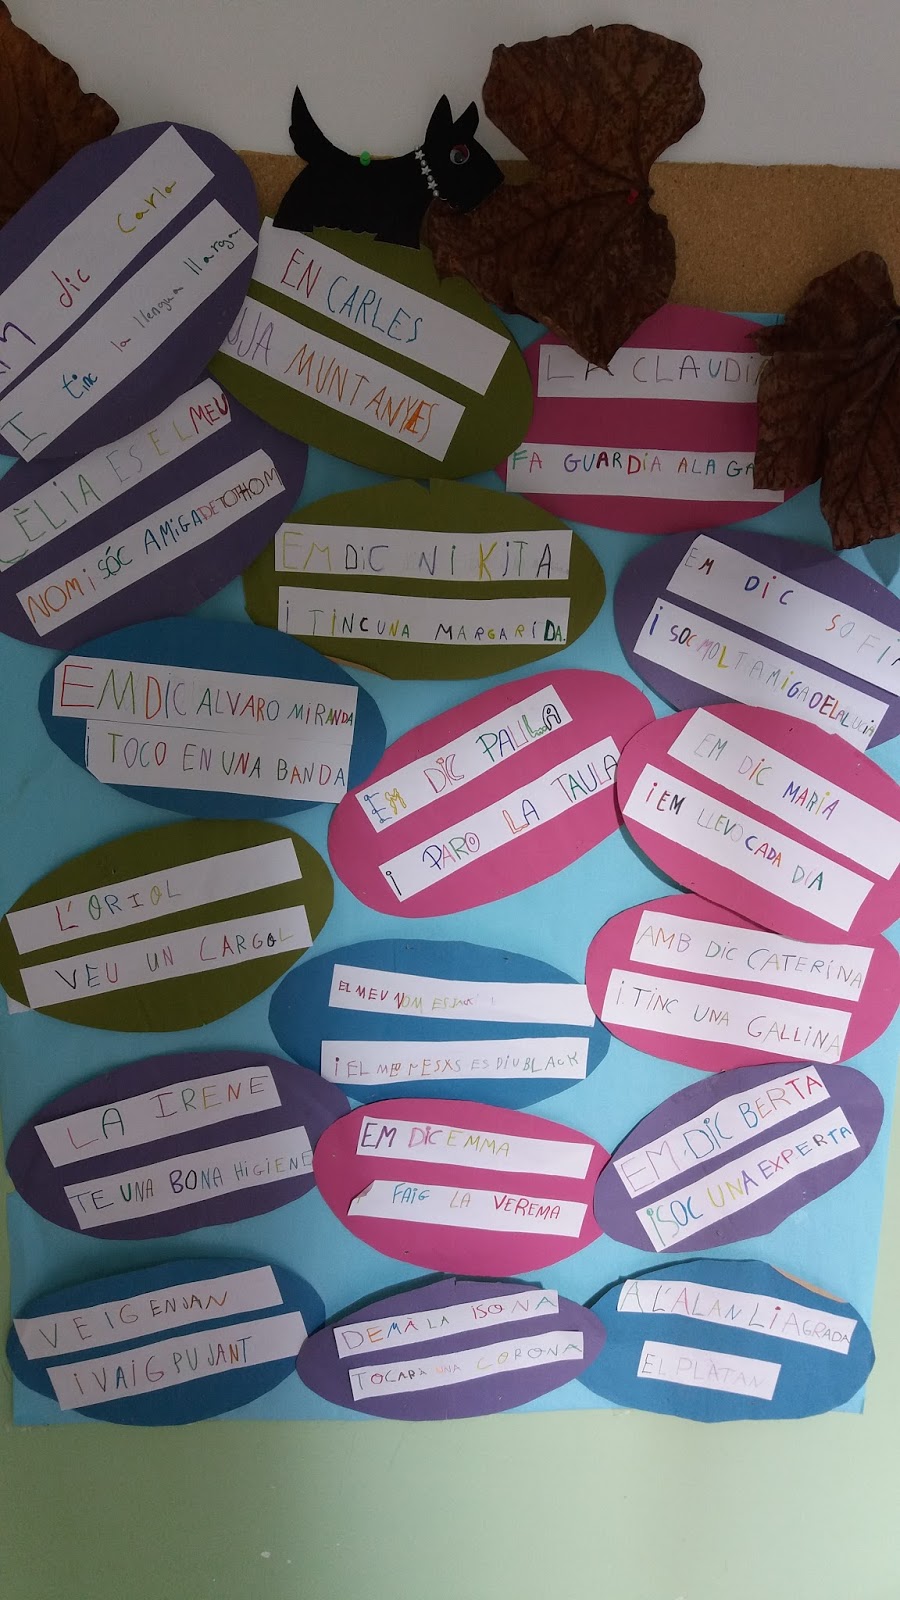 dic Carla
I tinc la llengua llarga.
EN CARLES
PUJA MUNTANYES
LA CLAUDIA
FA GUARDIA A LA GA
CÈLIA ES EL MEU
NOM I SÓC AMIGA DE TOTHOM
EM DIC NIKITA
I TINC UNA MARGARIDA.
EM DIC SOFIA
I SOC MOLT AMIGA DE LA LUCIA
EM DIC ALVARO MIRANDA
I TOCO EN UNA BANDA
EM DIC PAULA
I PARO LA TAULA
EM DIC MARIA
I EM LLEVO CADA DIA
L'ORIOL
VEU UN CARGOL
AMB DIC CATERINA
I TINC UNA GALLINA
EL MEU NOM ES
I EL MEU ES DIU BLACK
LA IRENE
TE UNA BONA HIGIENE
EM DIC EMMA
FAIG LA VEREMA
EM DIC BERTA
I SOC UNA EXPERTA
VEIG EN JAN
I VAIG PUJANT
DEMÀ LA ISONA
TOCARÀ UNA CORONA
A L'ALAN LI AGRADA
EL PLATAN